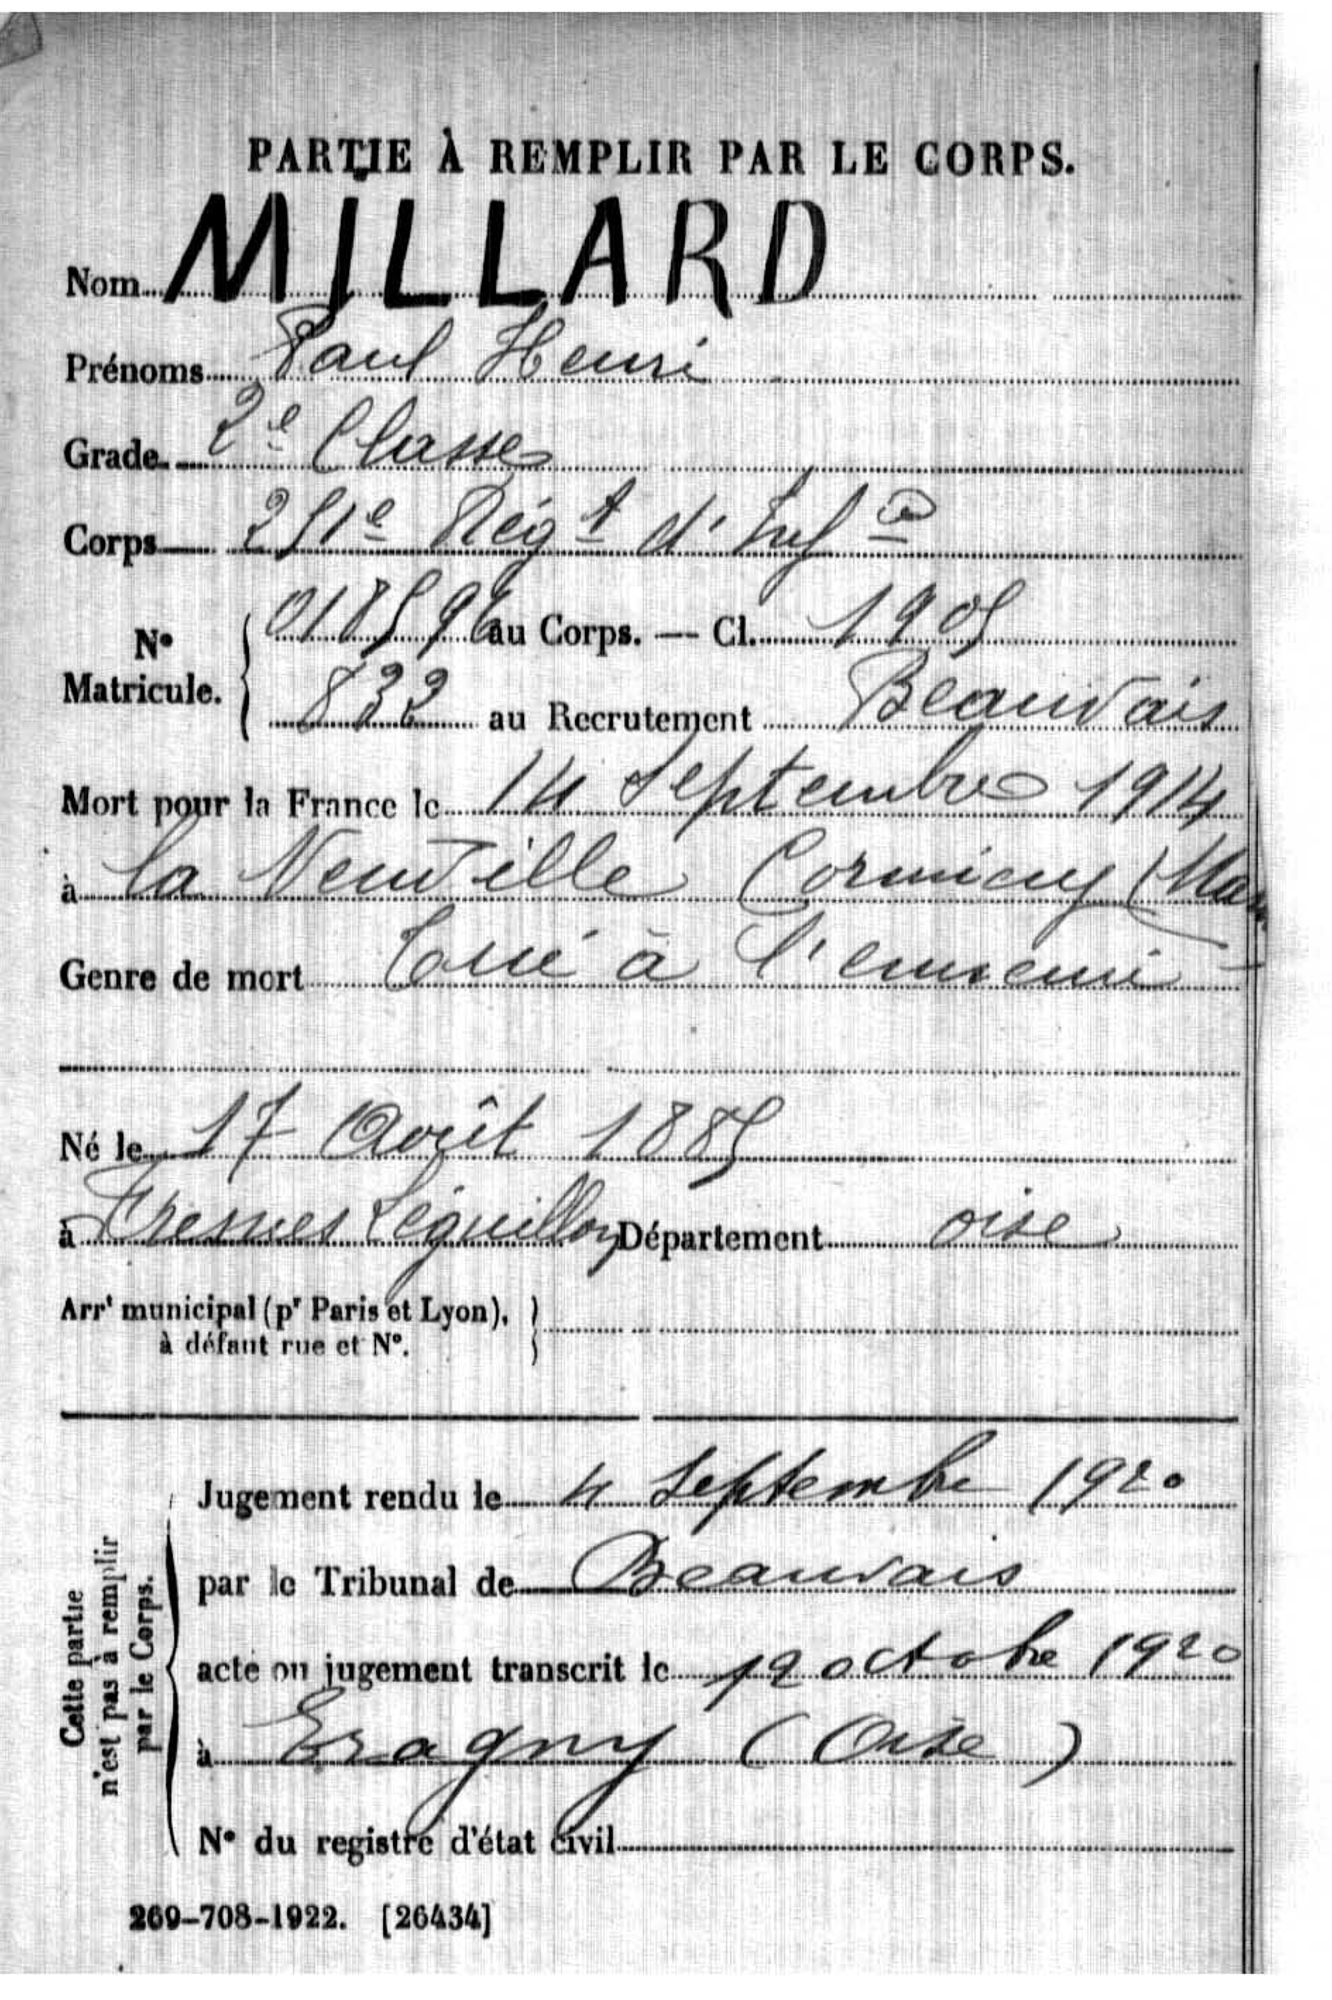 PARTIE À REMPLIR PAR LE CORPS.
Nom MILLARD
Prénoms Paul Henri
Grade 2e Classe
Corps 251e Régt d'Infie
N° Matricule. 018596 au Corps. — Cl. 1905
832 au Recrutement Beauvais
Mort pour la France le 14 Septembre 1914
à la Neuville Cormicy (Mar
Genre de mort Tué à l'ennemi
Né le 17 Août 1885
à Fresnes Léguillon Département oise
Arrt municipal (pr Paris et Lyon),
à défaut rue et N°.
Cette partie
n'est pas à remplir
par le Corps.
Jugement rendu le 4 Septembre 1920
par le Tribunal de Beauvais
acte ou jugement transcrit le 12 octobre 1920
à Eragny (Oise)
N° du registre d'état civil
269-708-1922. [26434]